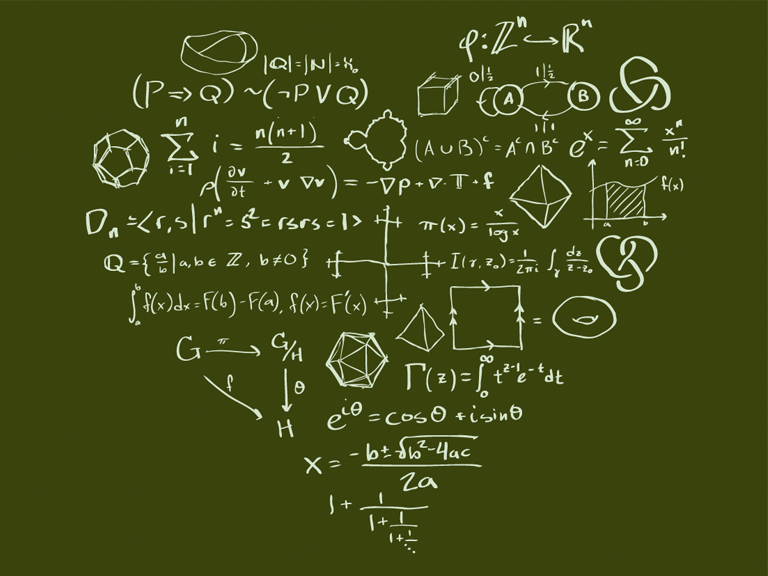 φ: ℤⁿ ↪ ℝⁿ
|ℚ|=|ℕ|=ℵ₀
(P ⇒ Q) ~ (¬P ∨ Q)
0|½ 1|½
A B
1|1
∑_{i=1}^{n} i = n(n+1)/2
(A ∪ B)ᶜ = Aᶜ ∩ Bᶜ
eˣ = ∑_{n=0}^{∞} xⁿ/n!
ρ(∂v/∂t + v·∇v) = -∇p + ∇·𝕋 + f
f(x)
a b
Dₙ = <r,s|rⁿ = s² = rsrs = 1>
π(x) = x/log x
ℚ = {a/b | a,b ∈ ℤ, b≠0}
I(γ,z₀) = 1/2πi ∫_γ dz/z-z₀
∫_a^b f(x)dx = F(b) - F(a), f(x) = F'(x)
=
G π G/H
f θ
H
Γ(z) = ∫_0^∞ t^{z-1}e^{-t}dt
e^{iθ} = cosθ + i sinθ
x = -b ± √(b²-4ac) / 2a
1 + 1/(1 + 1/(1 + 1/⋱))